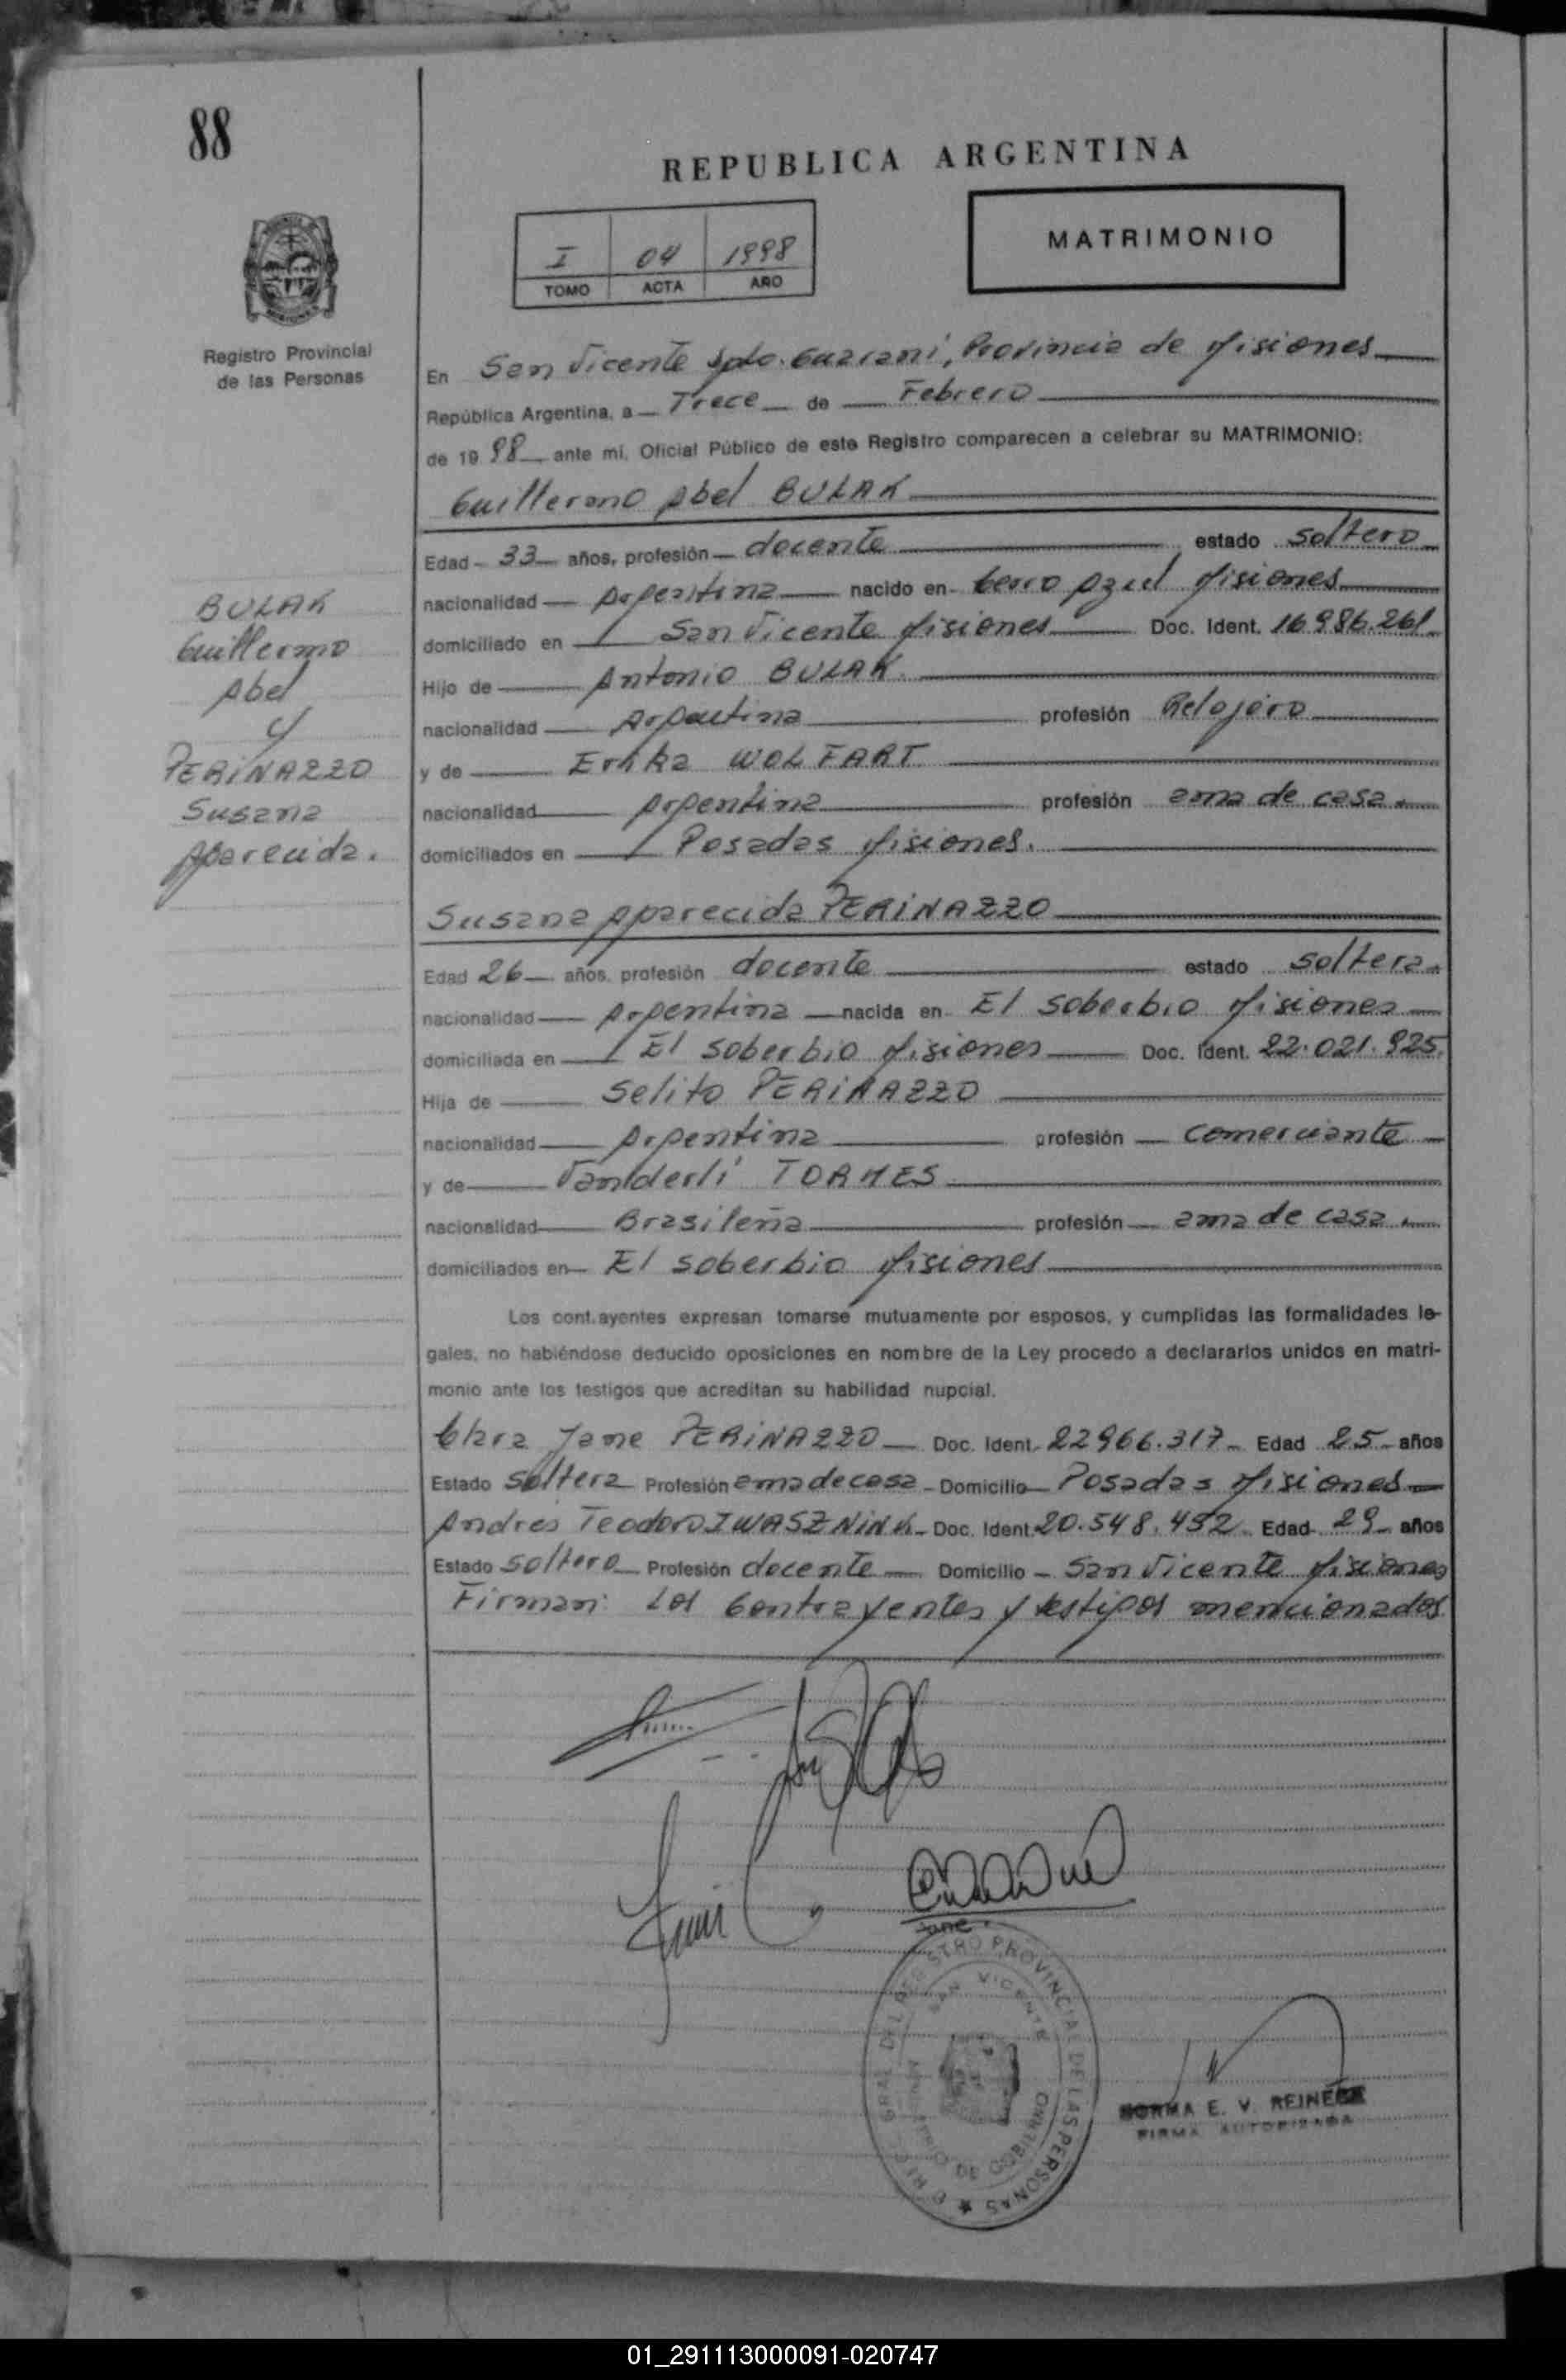 88
REPUBLICA ARGENTINA
MATRIMONIO
I 04 1998
TOMO ACTA AÑO
Registro Provincial
de las Personas
En San Vicente Dpto. Guaraní, Provincia de Misiones
República Argentina, a Trece de Febrero
de 19 98 ante mí, Oficial Público de este Registro comparecen a celebrar su MATRIMONIO:
Guillermo Abel BULAK
Edad 33 años, profesión docente estado soltero
nacionalidad Argentina nacido en Cerro Azul Misiones
domiciliado en San Vicente Misiones Doc. Ident. 16.986.261
Hijo de Antonio BULAK
nacionalidad Argentina profesión Relojero
y de Erika WOLFART
nacionalidad Argentina profesión ama de casa.
domiciliados en Posadas Misiones.
BULAK
Guillermo
Abel
y
PERINAZZO
Susana
Aparecida.
Susana Aparecida PERINAZZO
Edad 26 años, profesión docente estado soltera
nacionalidad Argentina nacida en El Soberbio Misiones
domiciliada en El Soberbio Misiones Doc. Ident. 22.021.925
Hija de Selito PERINAZZO
nacionalidad Argentina profesión comerciante
y de Vanderlí TORMES
nacionalidad Brasileña profesión ama de casa.
domiciliados en El Soberbio Misiones
Los cont.ayentes expresan tomarse mutuamente por esposos, y cumplidas las formalidades le-
gales, no habiéndose deducido oposiciones en nombre de la Ley procedo a declararlos unidos en matri-
monio ante los testigos que acreditan su habilidad nupcial.
Clara Jane PERINAZZO Doc. Ident. 22966.317 Edad 25 años
Estado soltera Profesión ama de casa Domicilio Posadas Misiones
Andrés Teodoro IWASZNINK Doc. Ident. 20.548.452 Edad 29 años
Estado soltero Profesión docente Domicilio San Vicente Misiones
Firman: Los Contrayentes y testigos mencionados
Jane
REGISTRO PROVINCIAL DE LAS PERSONAS
SAN VICENTE
DE GOBIERNO
NORMA E. V. REINECK
FIRMA AUTORIZADA
01_291113000091-020747